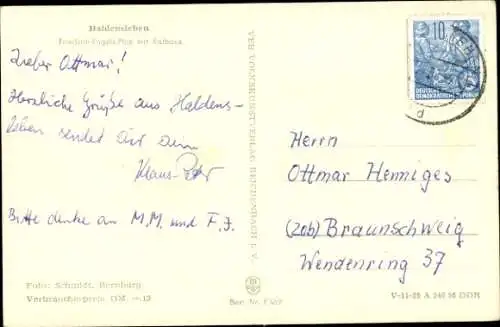 Haldensleben
Friedrich-Engels-Platz mit Rathaus
Lieber Ottmar!
Herzliche Grüße aus Haldens-
leben sendet Dir Dein
Klaus-Peter
Bitte denke an M.M. und F.J.
Foto: Schmidt, Bernburg
Verbraucherpreis DM
VEB VOLKSKUNSTVERLAG REICHENBACH i. V.
10
DEUTSCHE
DEMOKRATISCHE REPUBLIK
Herrn
Ottmar Henniges
(20b) Braunschweig
Wendenring 37
V-11-28 A 240 56 DDR